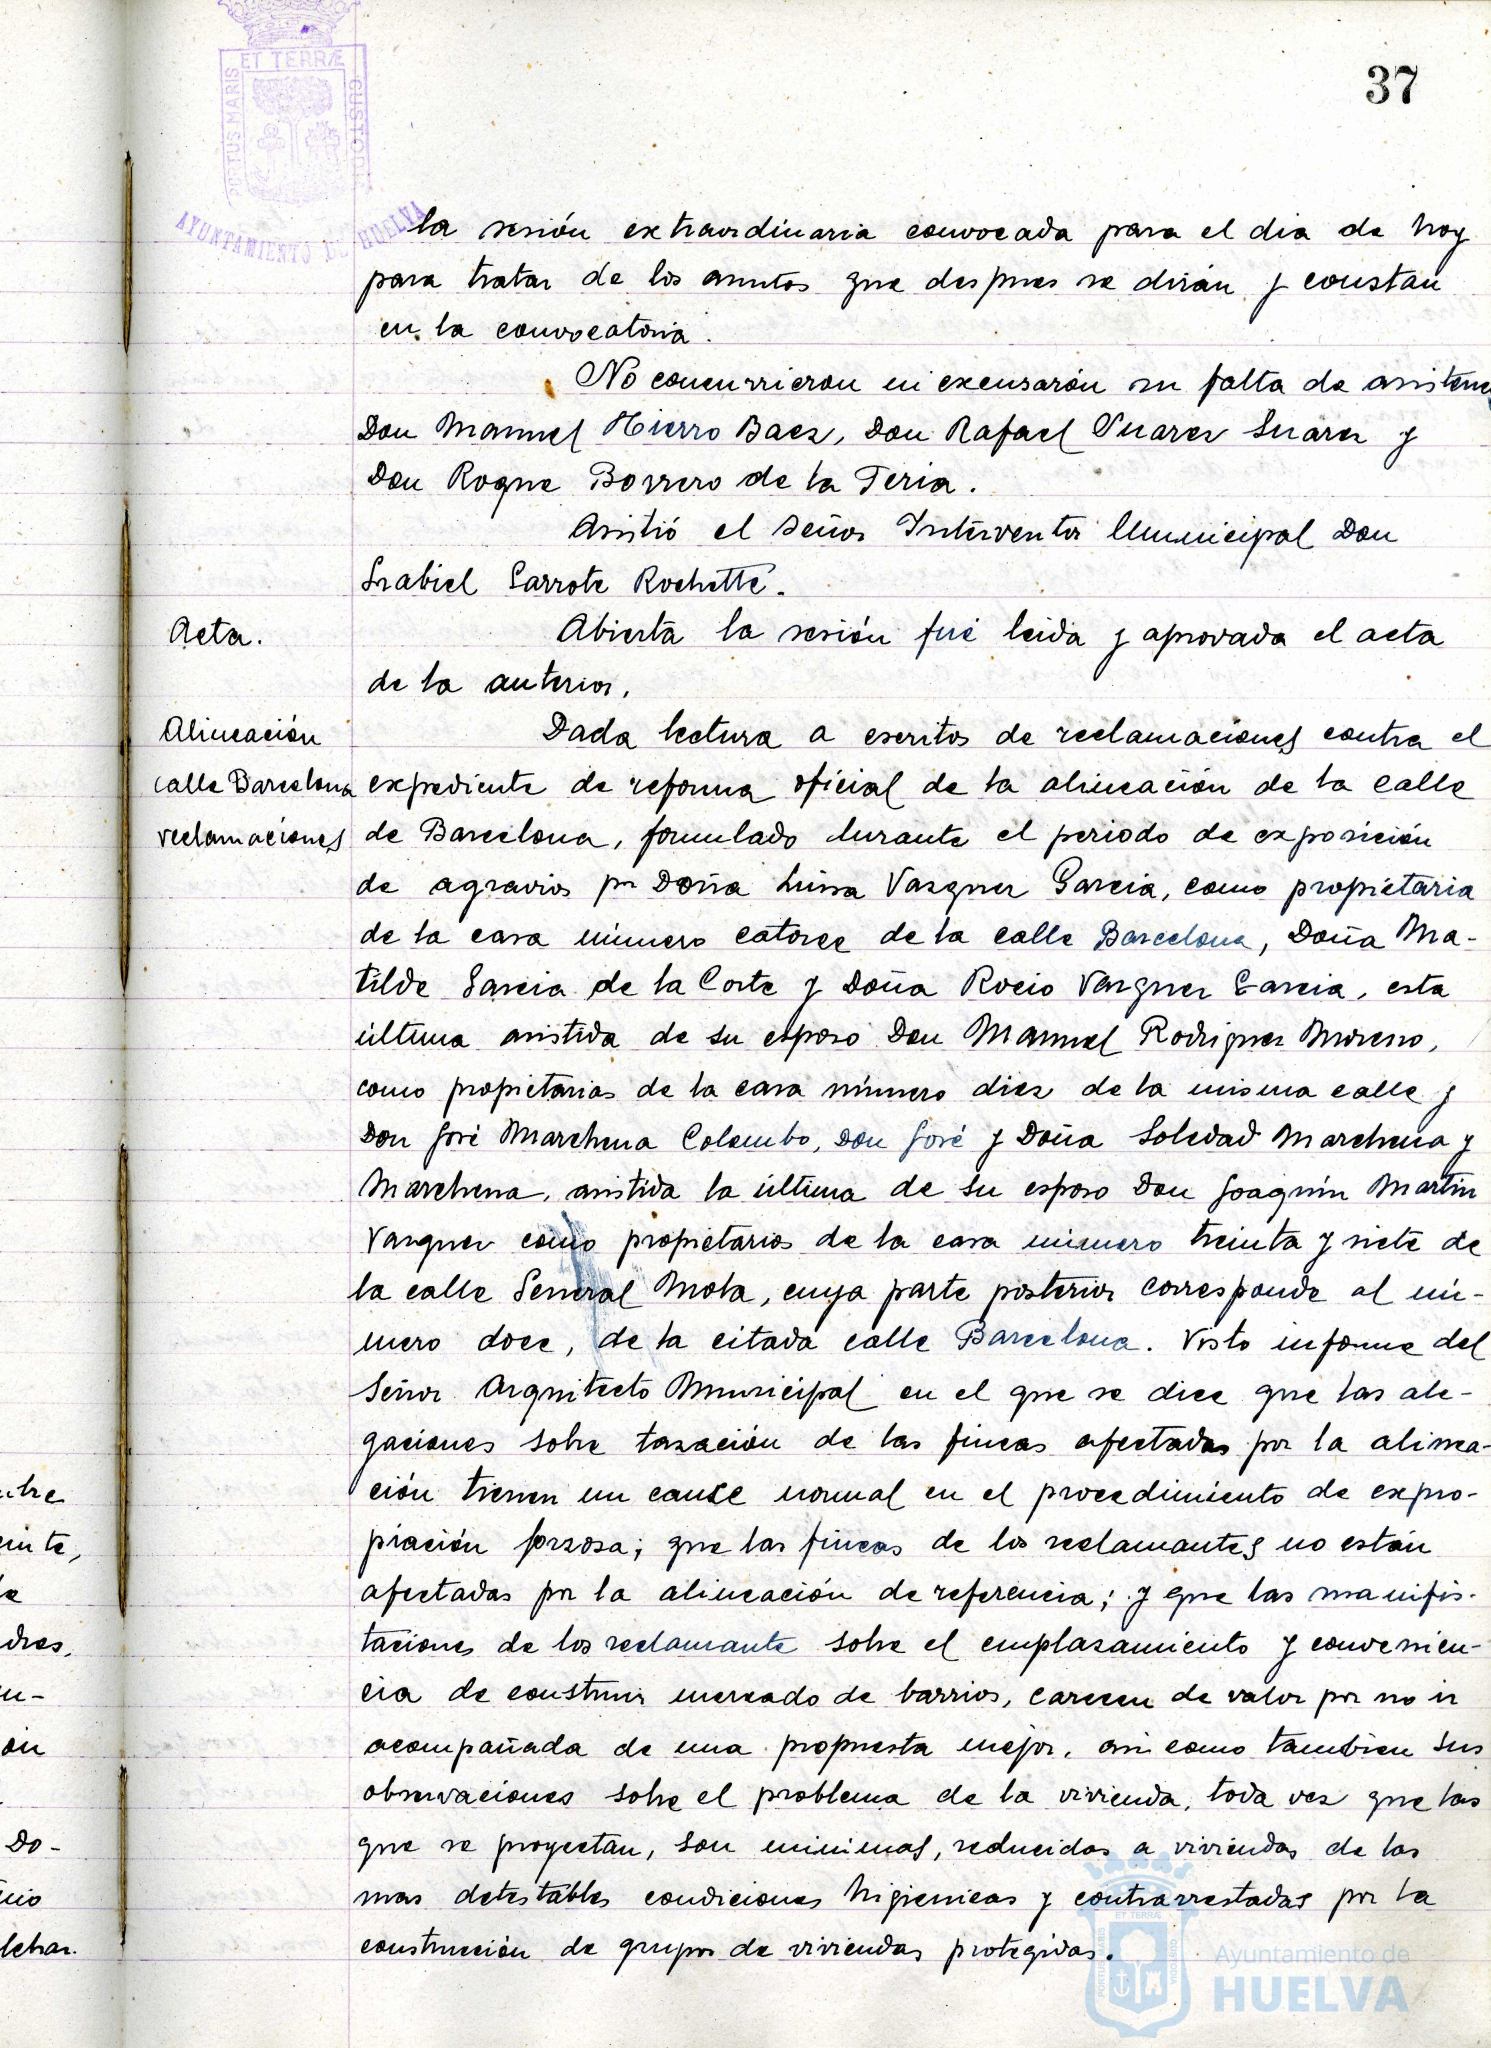 37
PORTUS MARIS ET TERRÆ CUSTODIA
AYUNTAMIENTO DE HUELVA
la sesión extraordinaria convocada para el dia de hoy
para tratar de los asuntos que despues se dirán y constan
en la convocatoria.
No concurrieron ni excusarón su falta de asistenc
Don Manuel Hierro Baez, Don Rafael Suarez Suarez y
Don Roque Borrero de la Feria.
Asistió el Señor Interventor Municipal Don
Grabiel Garrote Rochette.
Acta.
Abierta la sesión fué leida y aprovada el acta
de la anterior.
Alineación
calle Barcelona
reclamaciones
Dada lectura a escritos de reclamaciones contra el
expediente de reforma oficial de la alineación de la calle
de Barcelona, formulado durante el periodo de exposición
de agravios por Doña Luisa Vazquez Garcia, como propietaria
de la casa número catorce de la calle Barcelona, Doña Ma-
tilde Garcia de la Corte y Doña Rocio Vazquez Garcia, esta
última asistida de su esposo Don Manuel Rodriguez Moreno,
como propietarias de la casa número diez de la misma calle y
Don José Marchena Colombo, Don José y Doña Soledad Marchena y
Marchena, asistida la última de su esposo Don Joaquín Martin
Vazquez como propietarios de la casa número treinta y siete de
la calle General Mola, cuya parte posterior corresponde al nú-
mero doce, de la citada calle Barcelona. Visto informe del
Señor Arquitecto Municipal en el que se dice que las ale-
gaciones sobre tasación de las fincas afectadas por la alinea-
ción tienen un cause normal en el procedimiento de expro-
piación forzosa; que las fincas de los reclamantes no están
afectadas por la alineación de referencia; y que las manifis-
taciones de los reclamante sobre el emplazamiento y convenien-
cia de construir mercado de barrios, carecen de valor por no ir
acompañada de una propuesta mejor, asi como tambien sus
observaciones sobre el problema de la vivienda, toda vez que las
que se proyectan, son minimas, reducidas a viviendas de las
mas detestables condiciones higienicas y contrarrestadas por la
construcción de grupos de viviendas protegidas.
Ayuntamiento de
HUELVA